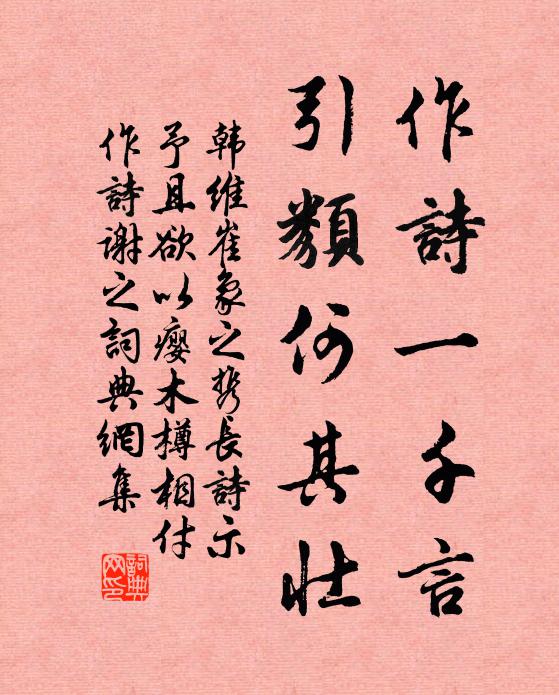 作詩一千言
引類何其壯
韩維崔象之携長詩示
予且欲以癭木樽相付
作詩謝之詞典網集
詞典
网印